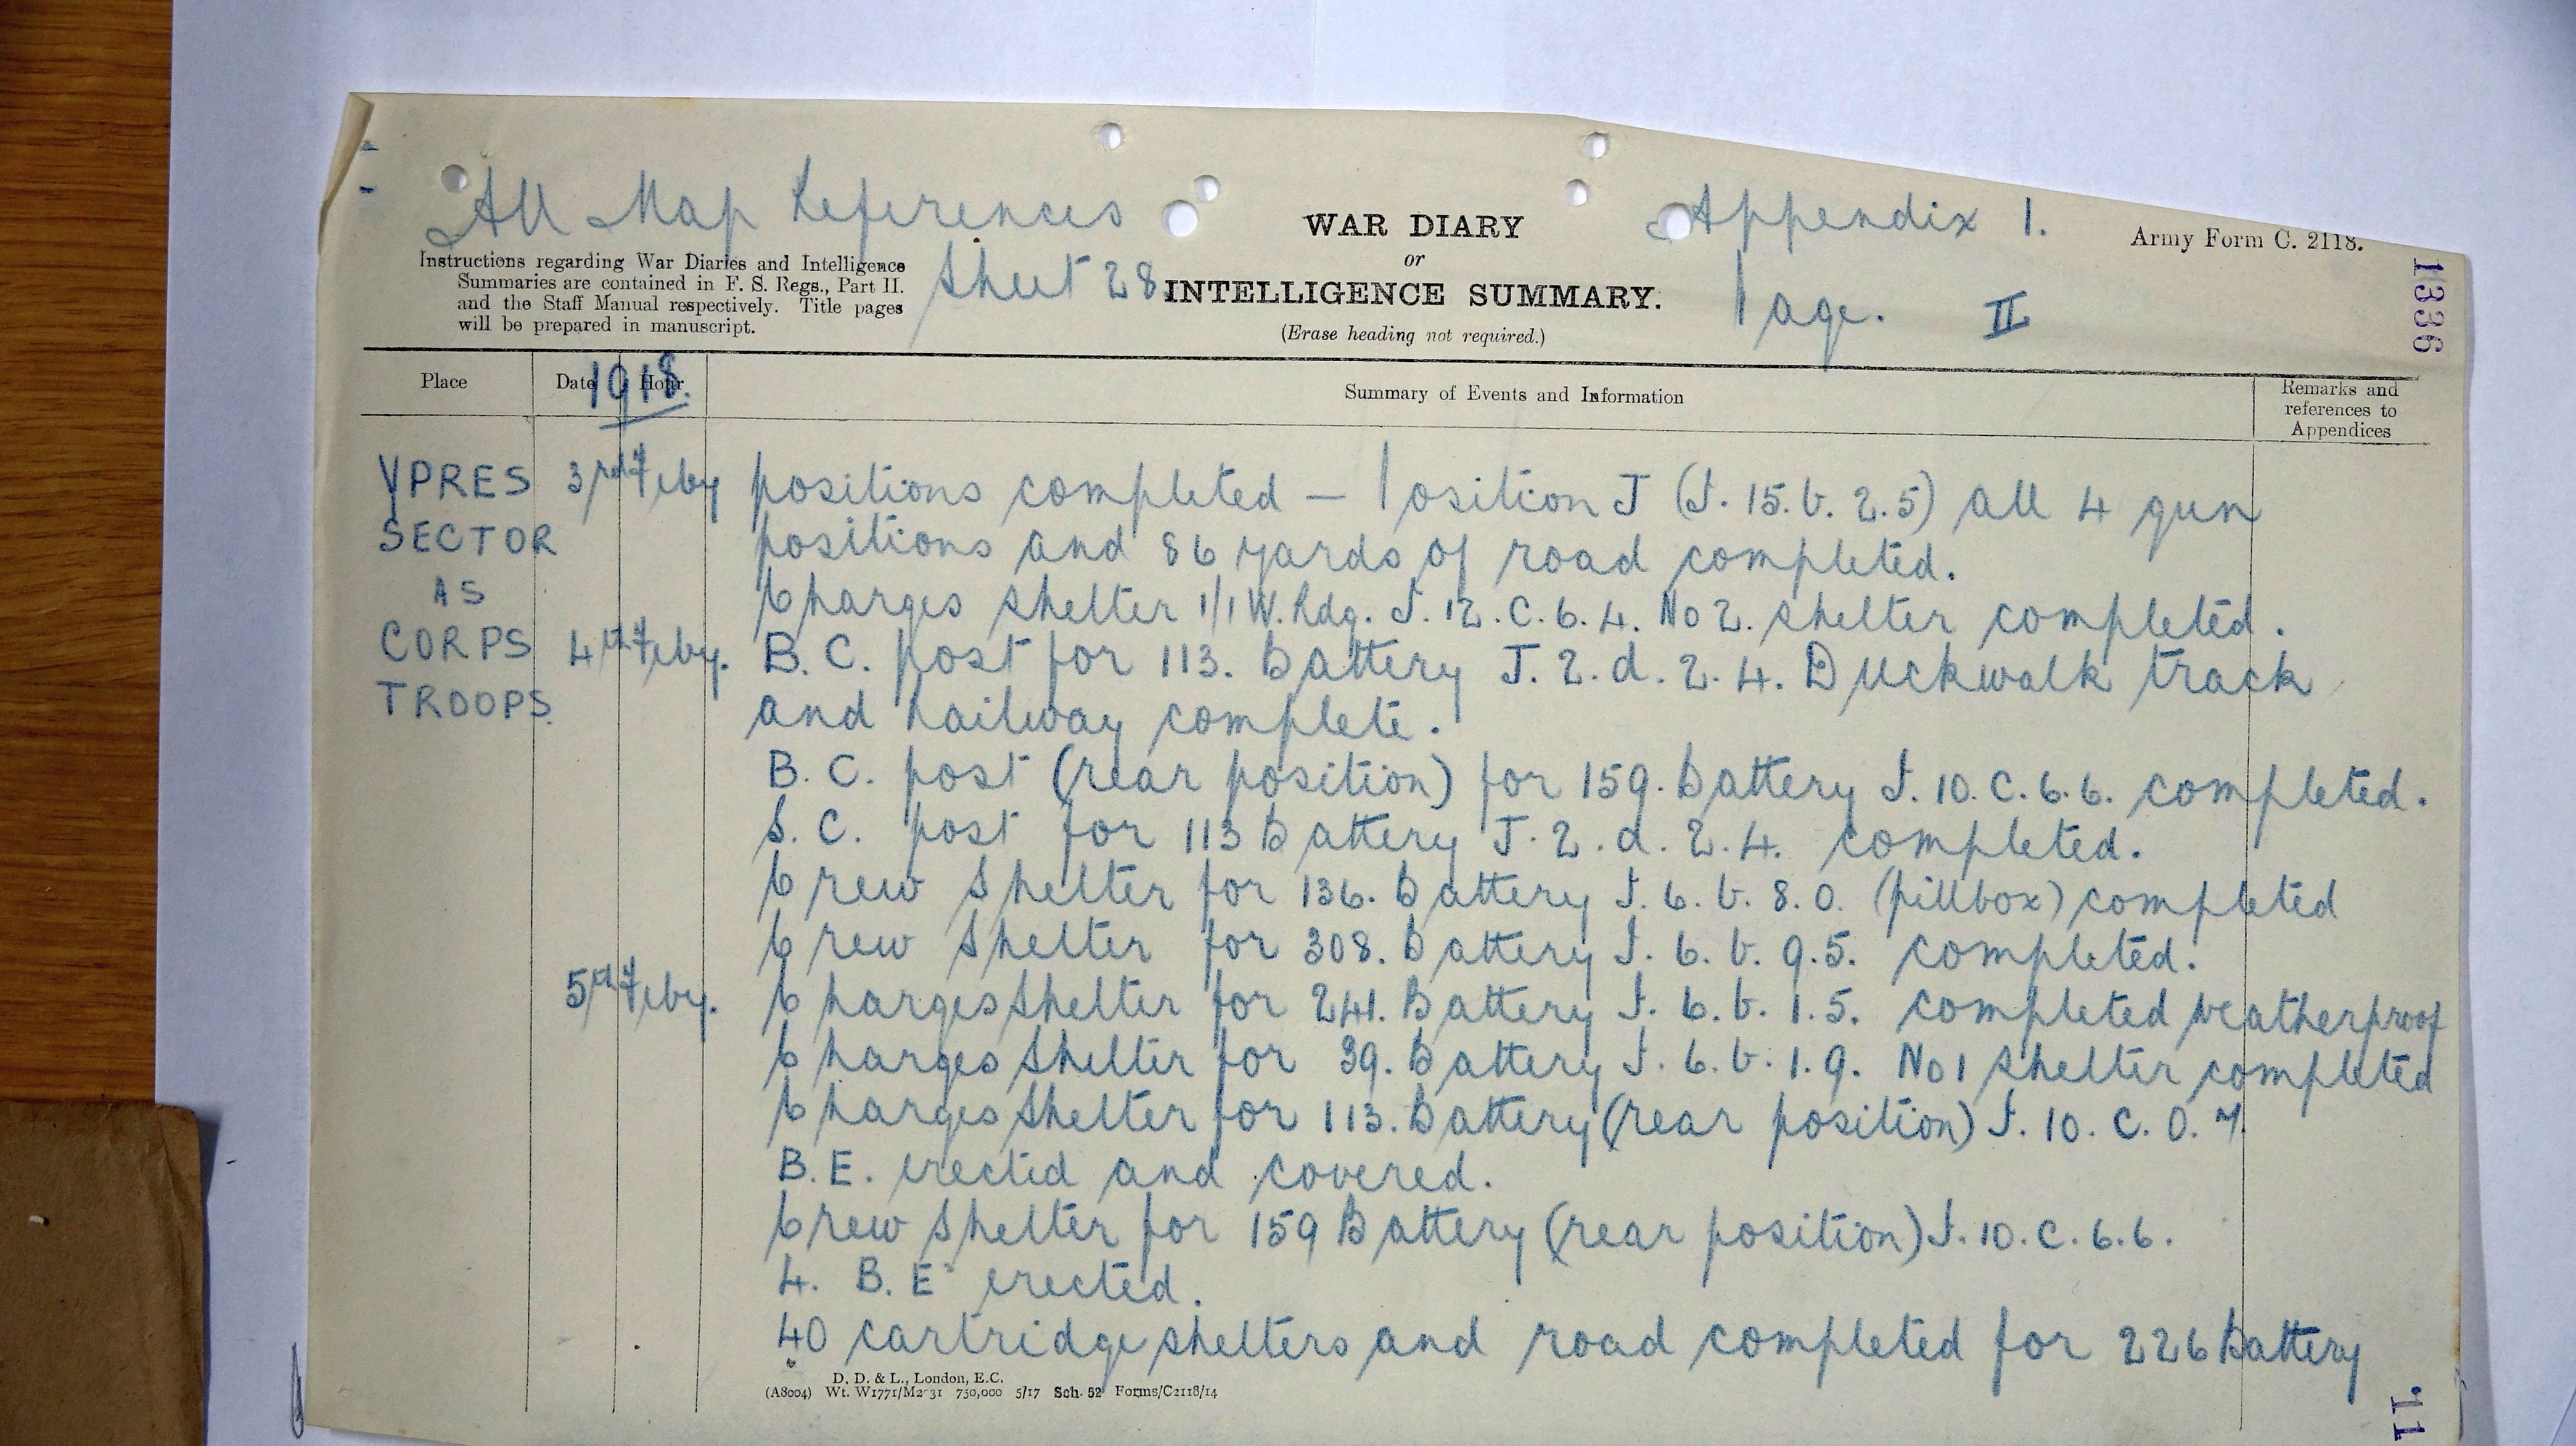 All Map References
Sheet 28.
WAR DIARY
or
INTELLIGENCE SUMMARY.
(Erase heading not required.)
Appendix 1.
Page. II
Army Form C. 2118.
1336
Instructions regarding War Diaries and Intelligence
Summaries are contained in F. S. Regs., Part II.
and the Staff Manual respectively. Title pages
will be prepared in manuscript.
Place
Date
Hour
1918.
Summary of Events and Information
Remarks and
references to
Appendices
YPRES
SECTOR
AS
CORPS
TROOPS.
3rd Feby positions completed — Position J (J. 15. b. 2.5) all 4 gun
positions and 86 yards of road completed.
Charges shelter 1/1 W. Rdg. J. 12. C. 6. 4. No 2. shelter completed.
4th Feby. B. C. post for 113. Battery J. 2. d. 2. 4. Duckwalk track
and railway complete.
B. C. post (rear position) for 159. Battery J. 10. C. 6. 6. completed.
S. C. post for 113 Battery J. 2. d. 2. 4. completed.
Crew shelter for 136. Battery J. 6. b. 8. 0. (pillbox) completed
Crew shelter for 308. Battery J. 6. b. 9. 5. completed.
5th Feby. Charges shelter for 241. Battery J. 6. b. 1. 5. completed weatherproof
Charges shelter for 39. Battery J. 6. b. 1. 9. No 1 shelter completed
Charges shelter for 113. Battery (rear position) J. 10. C. 0. 7.
B. E. erected and covered.
Crew shelter for 159 Battery (rear position) J. 10. C. 6. 6.
4. B. E erected.
40 cartridge shelters and road completed for 226 Battery
D. D. & L., London, E.C.
(A8004) Wt. W1771/M2-31 750,000 5/17 Sch. 52 Forms/C2118/14
11